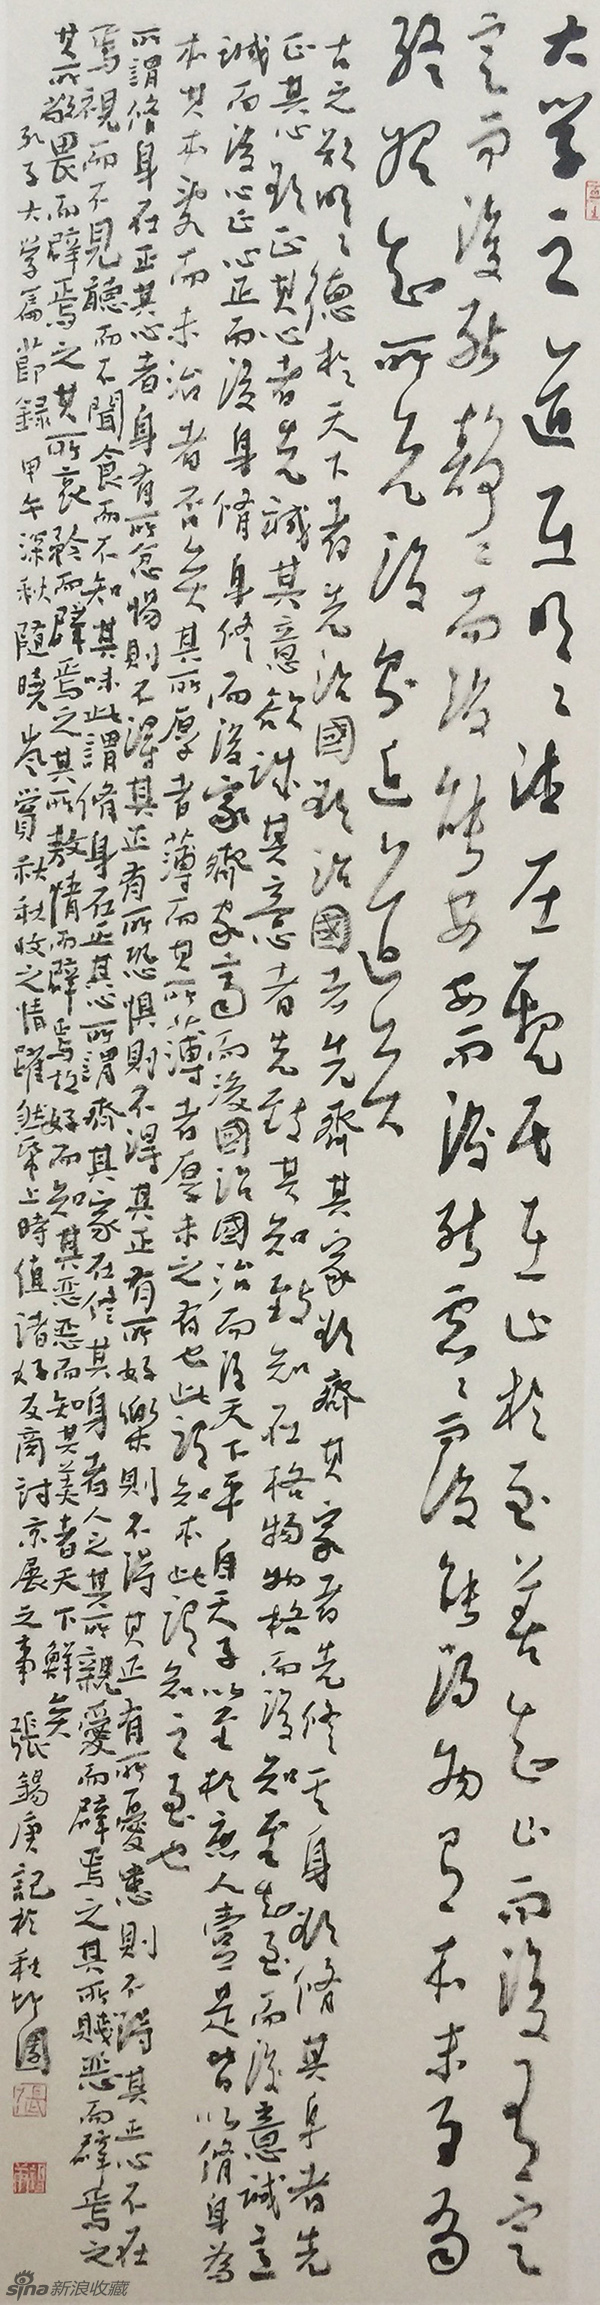 大学之道在明々德在亲民在止於至善知止而后有定
定而後能静々而后能安安而後能虑々而后能得物有本末事有
终始知所先後则近道矣
古之欲明々德於天下者先治國欲治國者先齊其家欲齊其家者先修其身欲脩其身者先
正其心欲正其心者先誠其意欲誠其意者先致其知致知在格物物格而後知至知至而後意誠意
誠而後心正心正而後身脩身修而後家齊家齊而後國治國治而后天下平自天子以至於庶人壹是皆以脩身為
本其本亂而未治者否矣其所厚者薄而其所薄者厚未之有也此謂知本此謂知之至也
所謂脩身在正其心者身有所忿惕則不得其正有所恐惧則不得其正有所好樂則不得其正有所憂患則不得其正心不在
焉視而不見聽而不聞食而不知其味此謂脩身在正其心所謂齊其家在修其身者人之其所親愛而辟焉之其所賤惡而辟焉之
其所敬畏而辟焉之其所哀矜而辟焉之其所敖惰而辟焉故好而知其惡惡而知其美者天下鮮矣
孔子大学篇節録甲午深秋隨曉嵐賞秋秋收之情躍然筆上時值諸好友商討京展之事張錫庚記於秋竹園
sina新浪收藏